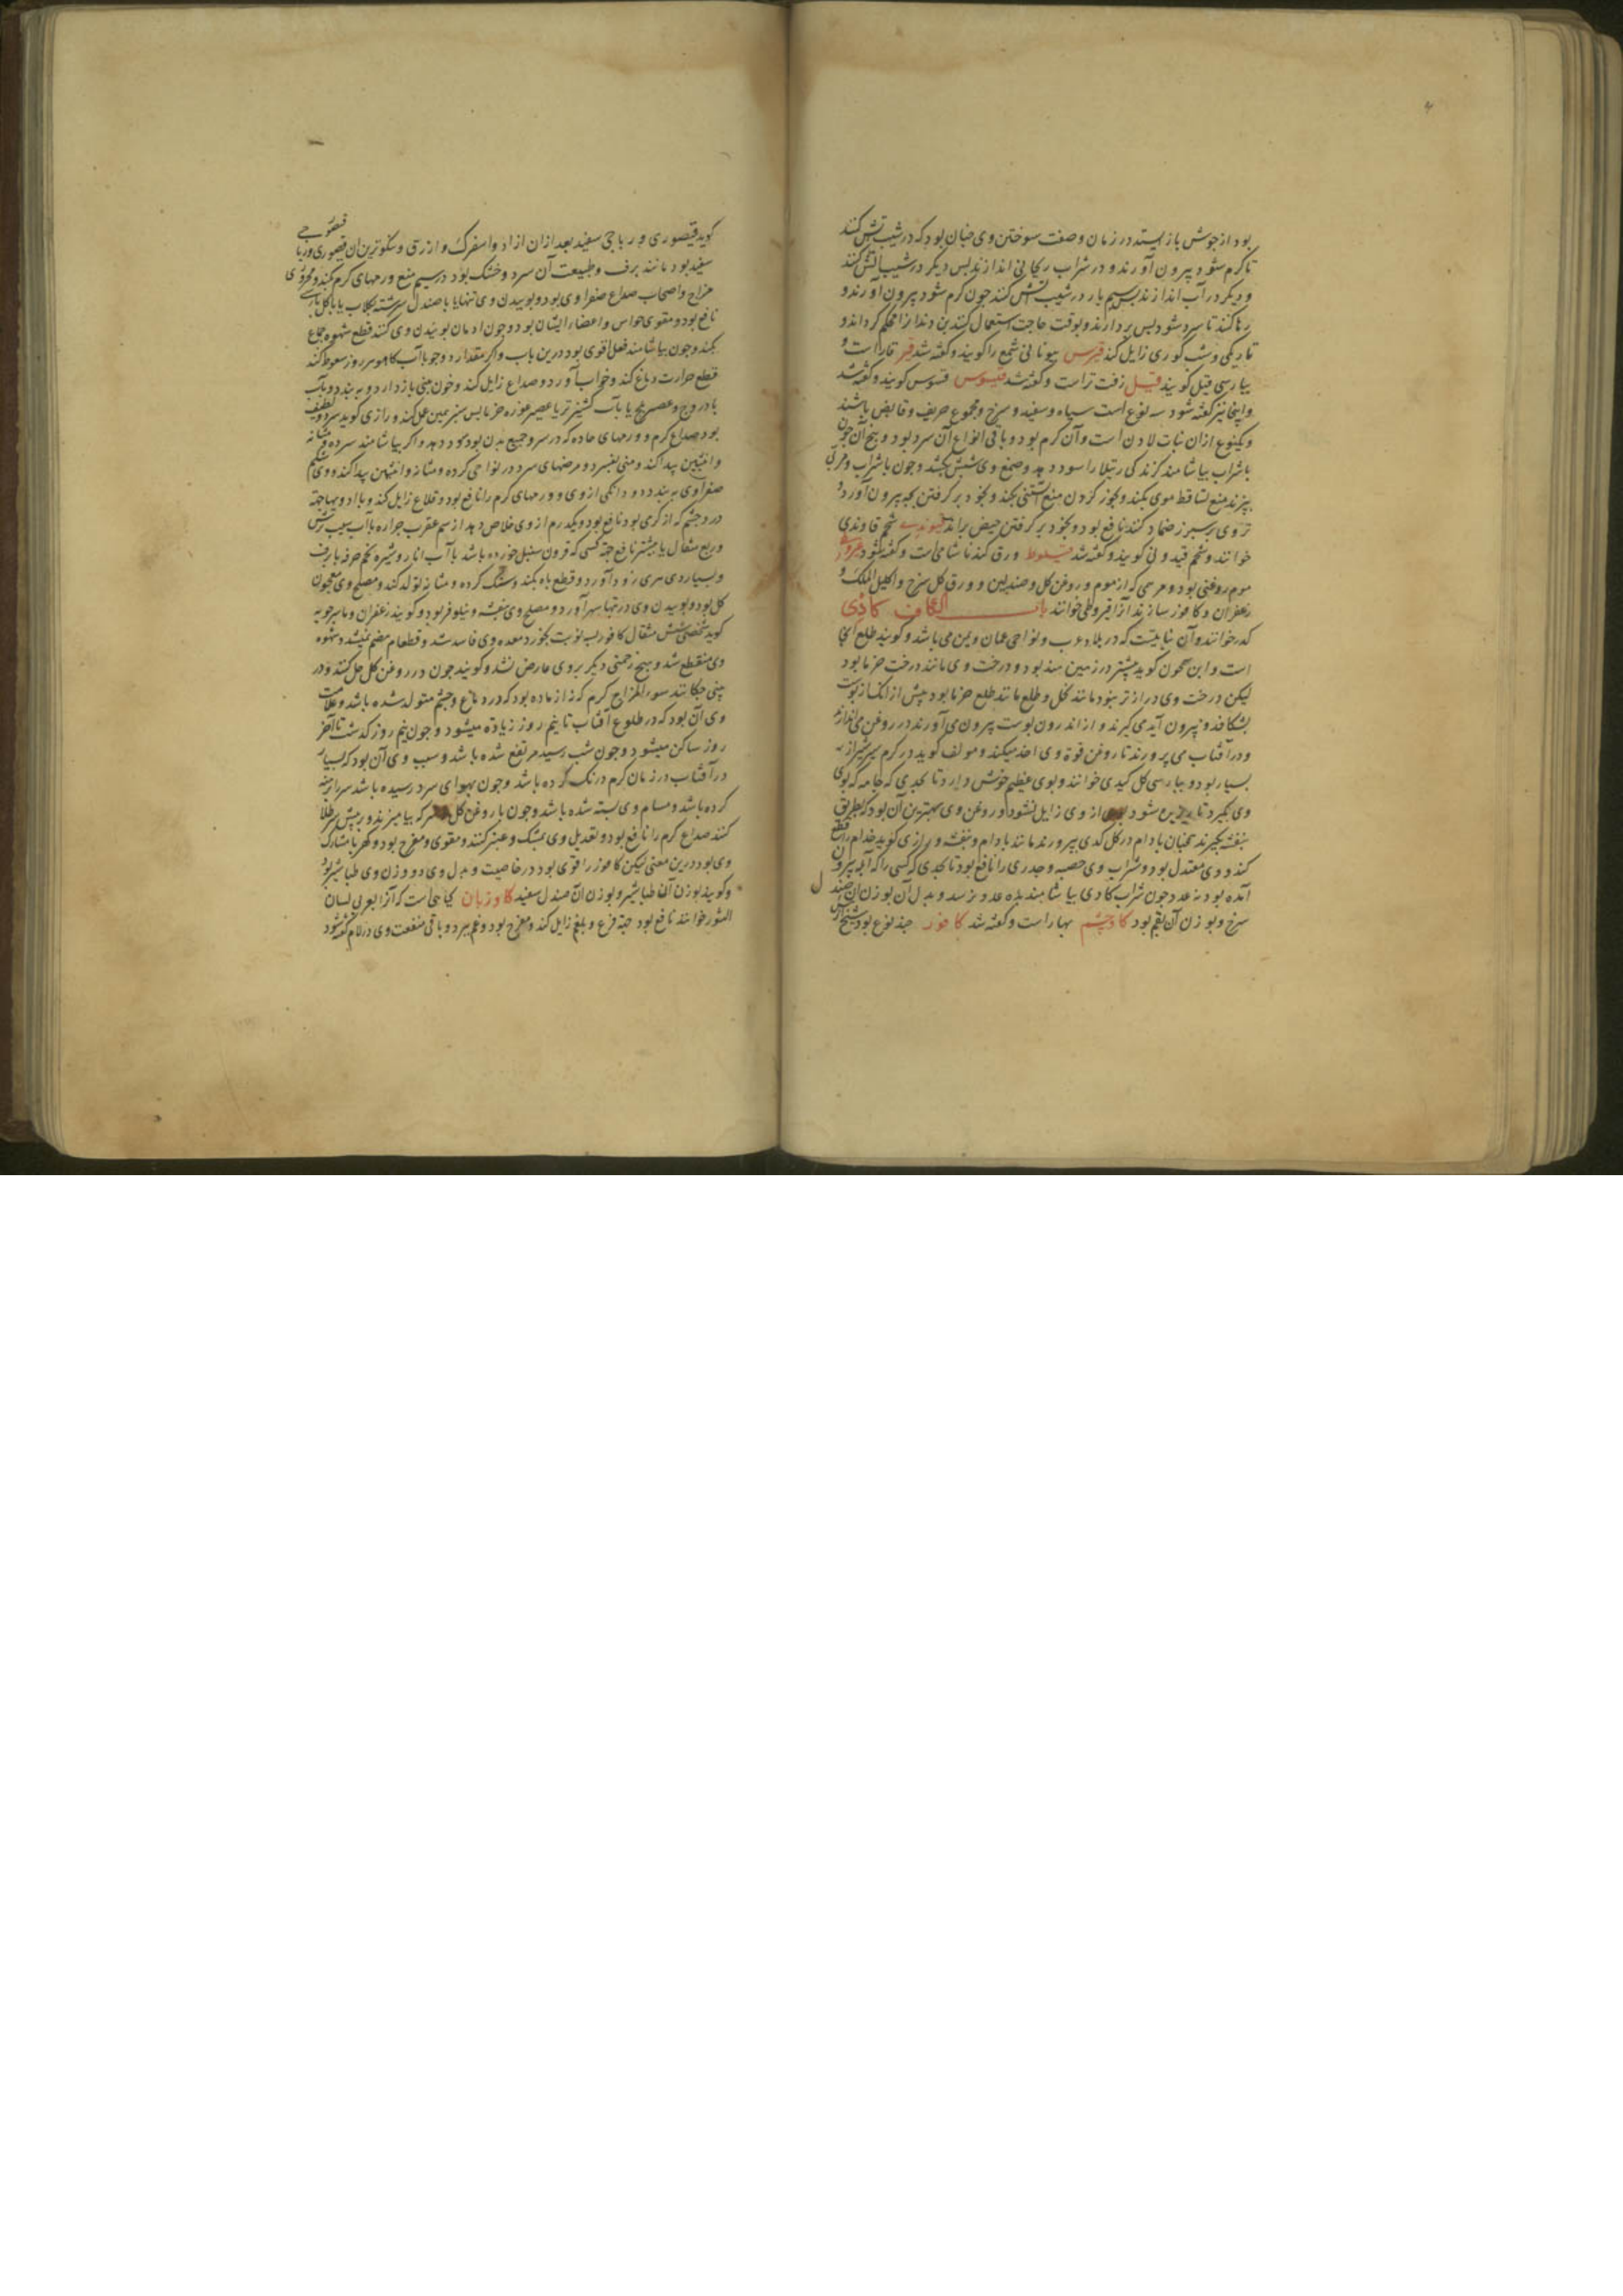 بود از جوش باز ایستد در زمان وصفت سوختن وی چنان بود که در شیب آتش کنند
تا کرم شود بیرون آورند و در شراب ریحانی اندازند بس دیکر در شیب آتش کنند
و دیکر در آب اندازند بس سیم بار در شیب آتش کنند جون کرم شود بیرون آورند و
رها کنند تا سرد شود بس بردارند و بوقت حاجت استعمال کنند بن دندانرا محکم کرداند و
تاریکی و شب کوری زایل کند قیرس بیونانی شمع را کویند و کفته شد قیر قارا ست و
بپارسی قیل کویند قیل زفت تر است و کفته شد قیسوس قسوس کویند و کفته شد
و اینجا نیز کفته شود سه نوع است سیاه و سفید و سرخ و مجموع حریف و قابض باشند
و یکنوع ازان نبات لادن است و آن کرم بود و باقی انواع آن سرد بود و بیخ آن جون
با شراب بیاشامند کزندکی رتیلا را سود دهد و صمغ وی شپش بکشد و جون با شراب و مرقی
بپزند منع تساقط موی بکند و بخور کردن منع آبستنی بکند و بخود برکرفتن بچه بیرون آورد و
تروی بر سپرز ضماد کنند نافع بود و بخود برکرفتن حیض براند قیوندی شحم قاوندی
خوانند و شحم قیدونی کویند و کفته شد قیلوط ورق کندنا شامی است و کفته شود قیروطی
موم روغنی بود و مرهمی که از موم و روغن کل و صندلین و ورق کل سرخ و اکلیل الملک و
زعفران و کافور سازند آنرا قیروطی خوانند باب الکاف کاذی
کدر خوانند و آن نباتیست که در بلاد عرب و نواحی عمان و یمن می باشد و کویند طلع آن
است و ابن سمحون کوید بیشتر در زمین هند بود و درخت وی مانند درخت خرما بود
لیکن درخت وی دراز تر نبود مانند نخل و طلع مانند طلع خرما بود پیش از انک از پوست
بشکافد و بیرون آید می کیرند و از اندرون پوست بیرون می آورند در روغن می اندازند
و در آفتاب می پرورند تا روغن قوة وی اخذ میکند و مولف کوید در کرم سیر شیراز
بسیار بود و بپارسی کل کیدی خوانند و بوی عظیم خوش دارد تا بحدی که جامه که بوی
وی بکیرد تا شود بوی از وی زایل نشود و روغن وی بهترین آن بود که بطریق
بنفشه بکیرند همچنان بادام در کل کدی بپرورند مانند بادام و بنفشه و رازی کوید جذام را قطع
کند و وی معتدل بود و شراب وی حصبه و جدری را نافع بود تا بحدی که کسی را که آبله بیرون
آمده بود نه عدد جون شراب کادی بیاشامند بده عدد نرسد و بدل آن بوزن آن صندل
سرخ و بوزن آن بقم بود کاوچشم بهار است و کفته شد کافور چند نوع بود
کوید قیصوری و ریاحی سفید بعد ازان ازاد و اسفرک و ازرق و نیکوترین آن قیصوری و ریاحی
سفید بود مانند برف و طبیعت آن سرد و خشک بود در سیم منع ورمهای کرم بکند و محروری
مزاج و اصحاب صداع صفراوی بود و بوییدن وی تنها یا با صندل سرشته بکلاب یا با کل پارسی
نافع بود و مقوی حواس و اعضاء ایشان بود و جون ادمان بوییدن وی کنند قطع شهوه جماع
بکند و جون بیاشامند فعل اقوی بود درین باب و اکر مقدار دو جو با آب کاهو هر روز سعوط کنند
قطع حرارت دماغ کند و خواب آورد و صداع زایل کند و خون بینی باز دارد و به بندد و بآب
بادروج و عصیر بلح یا بآب کشنیز تر یا عصیر غوره خرما پس سبز همین عمل کند و رازی کوید سرد و لطیف
بود صداع کرم و ورمهای حاده که در سر و جمیع بدن بود سود دهد و اکر بیاشامند سرده و مثانه
و انثیین پیدا کند و منی بفسرد و مرضهای سرد در نواحی کرده و مثانه و انثیین پیدا کند و وی شکم
صفراوی به بندد و دانکی از وی و ورمهای کرم را نافع بود و قلاع زایل کند و با ادویها جهة
درد چشم که از کرمی بود نافع بود و یکدرم از وی خلاص دهد از سم عقرب جراره بآب سیب ترش
و ربع مثقال یا بیشتر نافع جهة کسی که قرون سنبل خورده باشد با آب انار و شیره تخم خرفه با برف
و بسیار وی پیری زود آورد و قطع باه بکند و سنک کرده و مثانه تولد کند و مصلح وی معجون
کل بود و بوییدن وی در تبها سهر آورد و مصلح وی بنفشه و نیلوفر بود و کویند زعفران و ماسرجویه
کوید شخصی شش مثقال کافور بسه نوبت بخورد معده وی فاسد شد و قطعا طعام هضم نمیشد و شهوه
وی منقطع شد و هیچ زحمتی دیکر بر وی عارض نشد و کویند جون در روغن کل حل کنند و در
بینی چکانند سوء المزاج کرم که نه از ماده بود که در دماغ و چشم متولد شده باشد و علامت
وی آن بود که در طلوع آفتاب تا نیم روز زیاده میشود و جون نیم روز کذشت تا آخر
روز ساکن میشود و جون شب رسید مرتفع شده باشد و سبب وی آن بود که بسیار
در آفتاب در زمان کرم درنک کرده باشد و جون بهوای سرد رسیده باشد سر برهنه
کرده باشد و مسام وی بسته شده باشد و جون با روغن کل و سرکه بیامیزند و بر پیش سر طلا
کنند صداع کرم را نافع بود و تعدیل وی بمشک و عنبر کنند و مقوی و مفرح بود و کهربا مشارک
وی بود درین معنی لیکن کافور را قوی بود در خاصیت و بدل وی دو وزن وی طباشیر بود
و کویند بوزن آن طباشیر و بوزن آن صندل سفید کاوزبان کیاهی است که آنرا بعربی لسان
الثور خوانند نافع بود جهة فزع و بلغم زایل کند و مفرح بود و غم ببرد و باقی منفعت وی در لام کفته شود